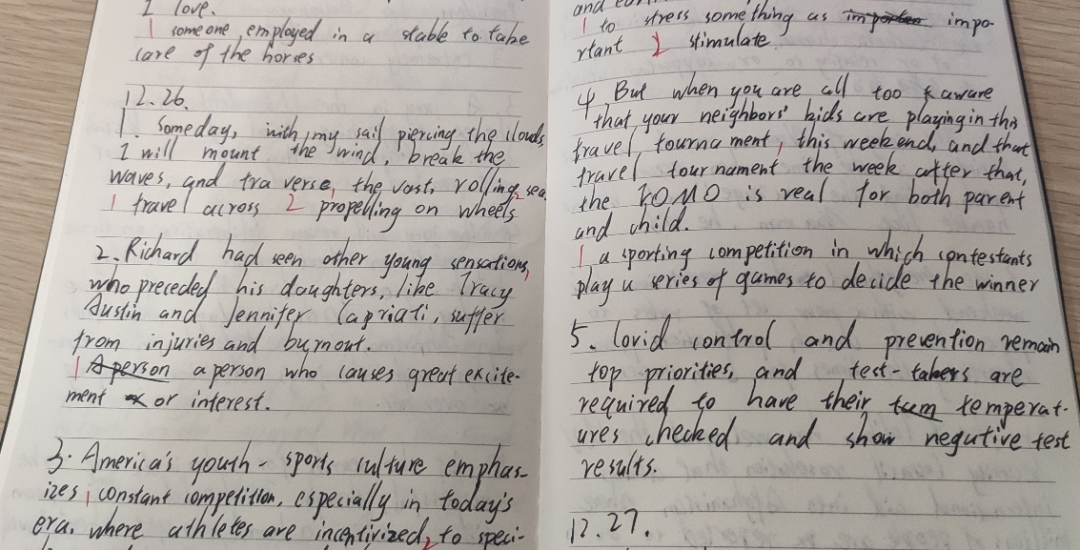 1 love.
1 someone employed in a stable to take
care of the horses
12.26.
1. Someday, with my sail piercing the clouds,
I will mount the wind, break the
waves, and traverse 1 the vast, rolling 2 sea
1 travel across 2 propelling on wheels
2. Richard had seen other young sensations, 1
who preceded his daughters, like Tracy
Austin and Jennifer Capriati, suffer
from injuries and burnout.
1 A person a person who causes great excite-
ment or interest.
3. America's youth-sports culture emphas-
izes 1 constant competition, especially in today's
era, where athletes are incentivized 2 to speci-
1 to stress something as impo
rtant 2 stimulate
4 But when you are all too aware
that your neighbors' kids are playing in this
travel tournament 1 this weekend, and that
travel tournament the week after that,
the FOMO is real for both parent
and child.
1 a sporting competition in which contestants
play a series of games to decide the winner
5. Covid control and prevention remain
top priorities, and test-takers are
required to have their temperat-
ures checked and show negative test
results.
12.27.